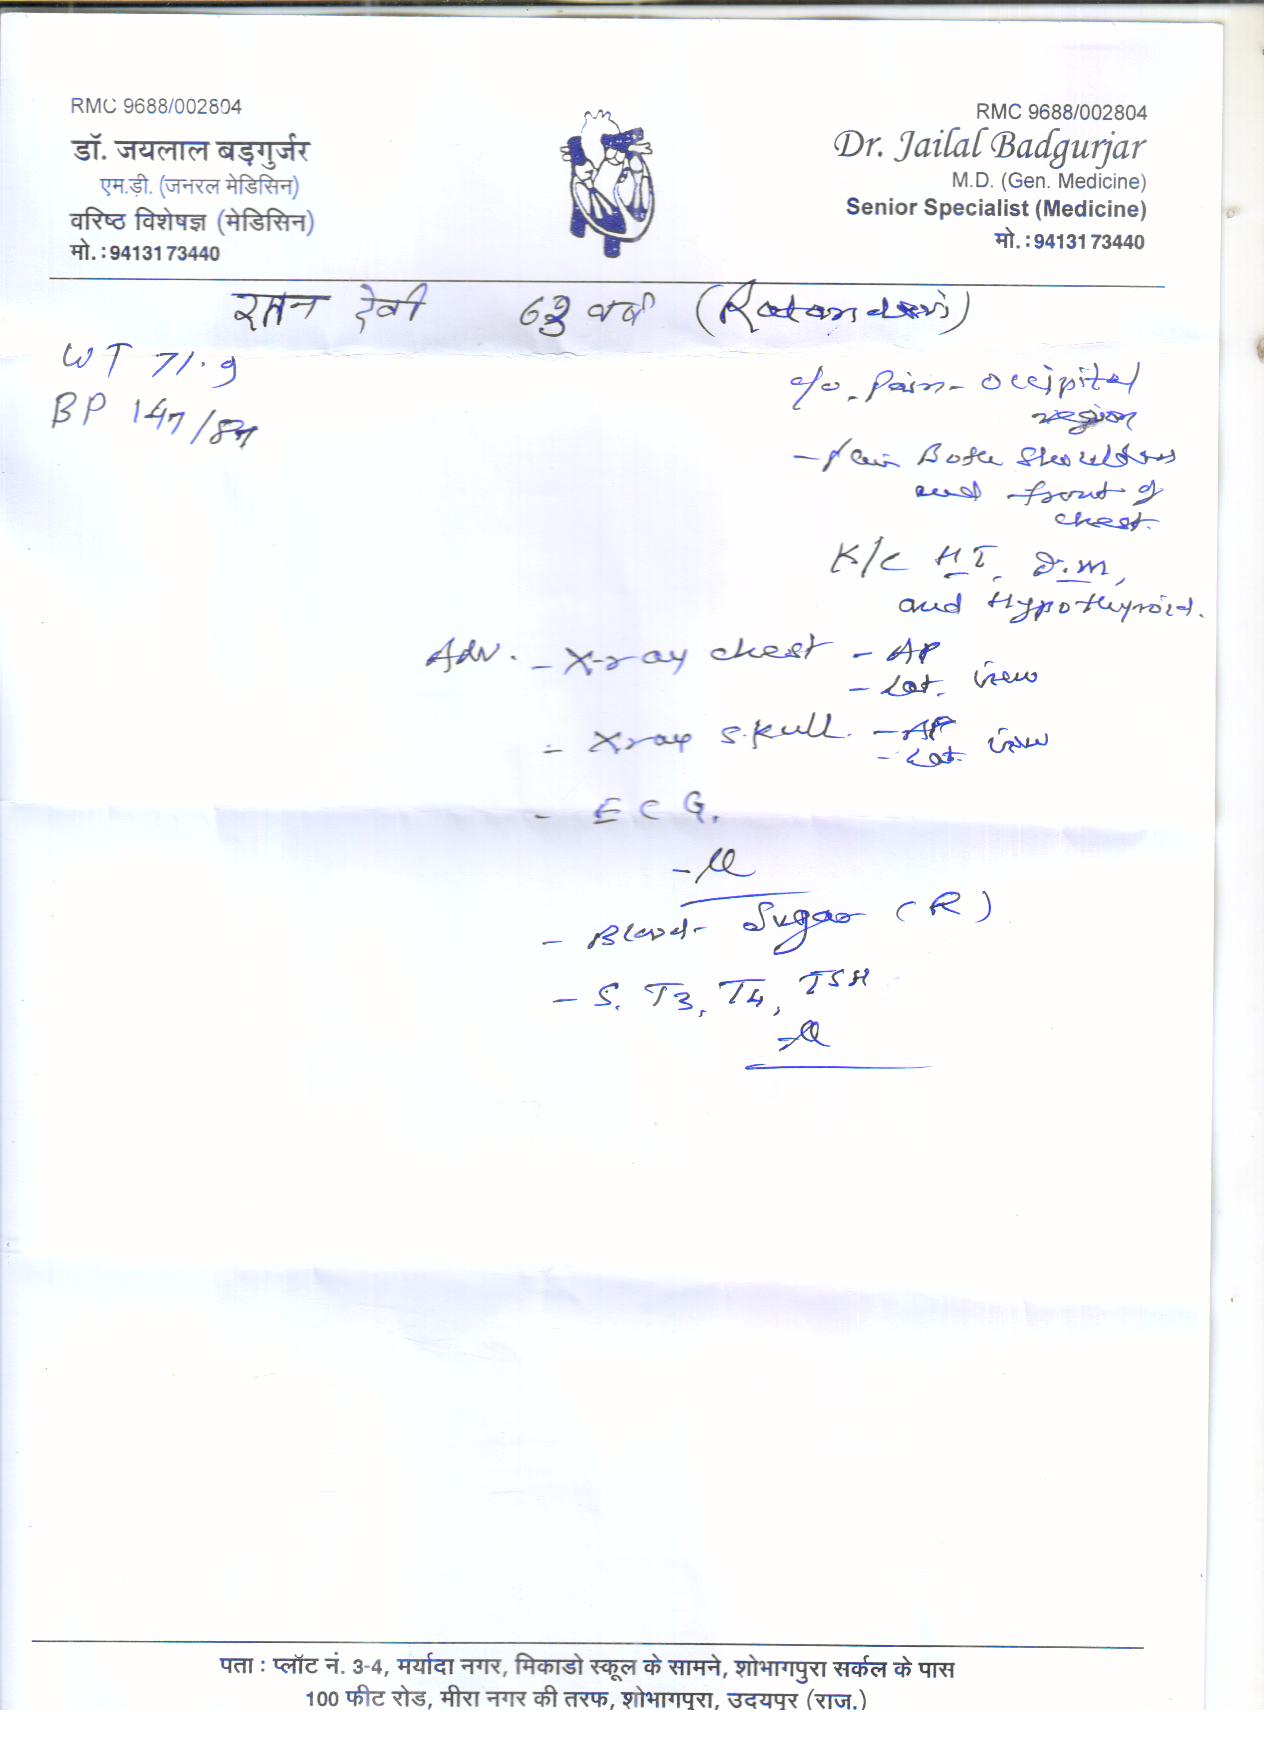 RMC 9688/002804
डॉ. जयलाल बड़गुर्जर
एम.डी. (जनरल मेडिसिन)
वरिष्ठ विशेषज्ञ (मेडिसिन)
मो. : 94131 73440
RMC 9688/002804
Dr. Jailal Badgurjar
M.D. (Gen. Medicine)
Senior Specialist (Medicine)
मो. : 94131 73440
रतन देवी 63 वर्ष (Ratan devi)
WT 71.9
BP 147/87
c/o - Pain - Occipital
region
- Pain Both Shoulders
and front of
chest.
K/C HT, D.M,
and Hypothyroid.
Adv. - X-ray chest - AP
- Lat. view
- Xray Skull. - AP
- Lat. view
- ECG.
- Blood Sugar (R)
- S. T3, T4, TSH
पता : प्लॉट नं. 3-4, मर्यादा नगर, मिकाडो स्कूल के सामने, शोभागपुरा सर्कल के पास
100 फीट रोड, मीरा नगर की तरफ, शोभागपुरा, उदयपुर (राज.)